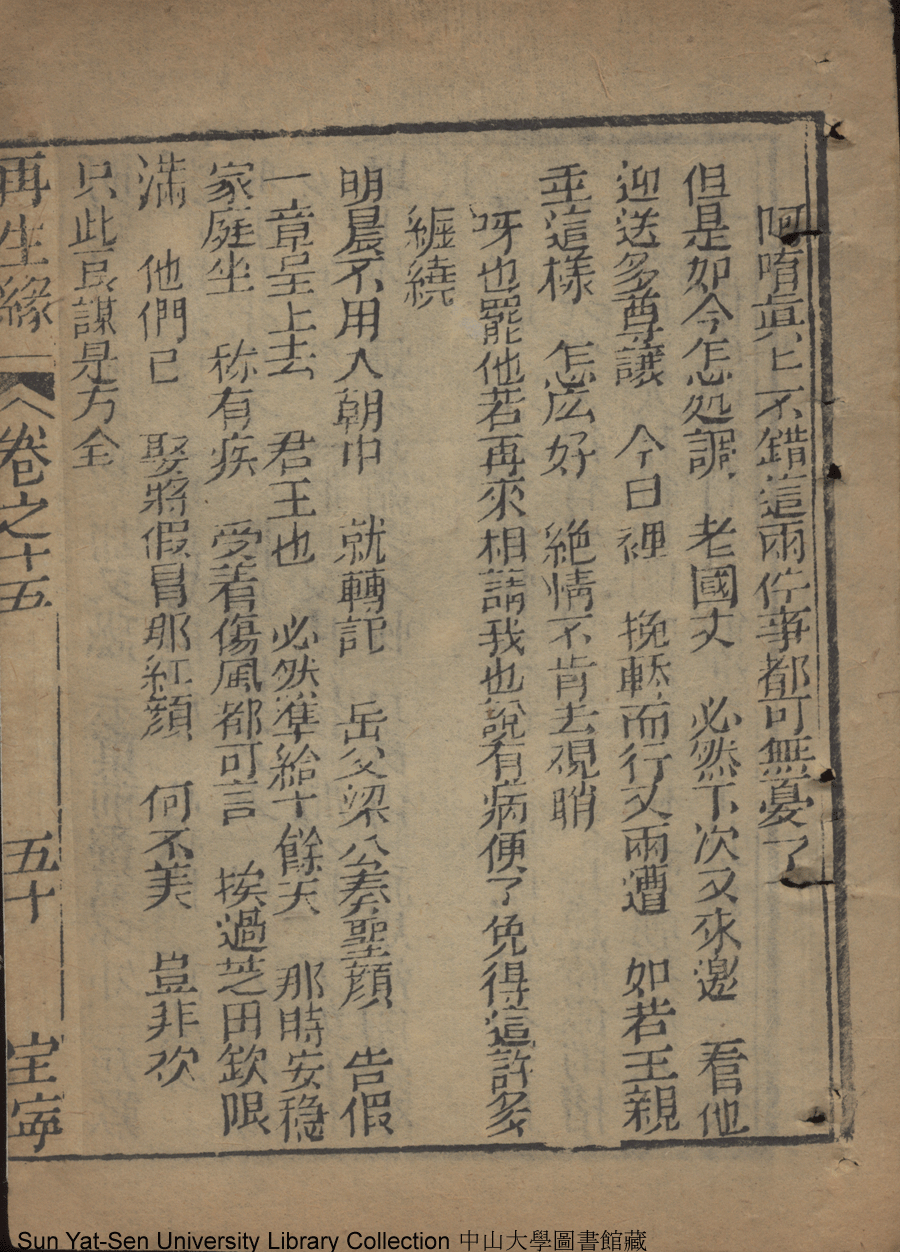 呵唷眞匕不錯這兩件事都可無憂了
但是如今怎処調 老國丈 必然下次又來邀 看他
迎送多尊讓 今日裡 挽轎而行又兩遭 如若王親
垂這樣 怎庅好 絶情不肯去覌䀡
呀也罷他若再來相請我也說有病便了免得這許多
纏繞
明晨不用入朝中 就轉託 岳父梁公奏聖顔 告假
一章呈上去 君王也 必然準給十餘天 那時安穩
家庭坐 称有疾 受着傷風都可言 挨過芝田欽限
滿 他們已 娶將假冒那紅顔 何不美 豈非欢
只此良謀是方全
再生緣 卷之十五 五十 宝寜
Sun Yat-Sen University Library Collection 中山大學圖書館藏